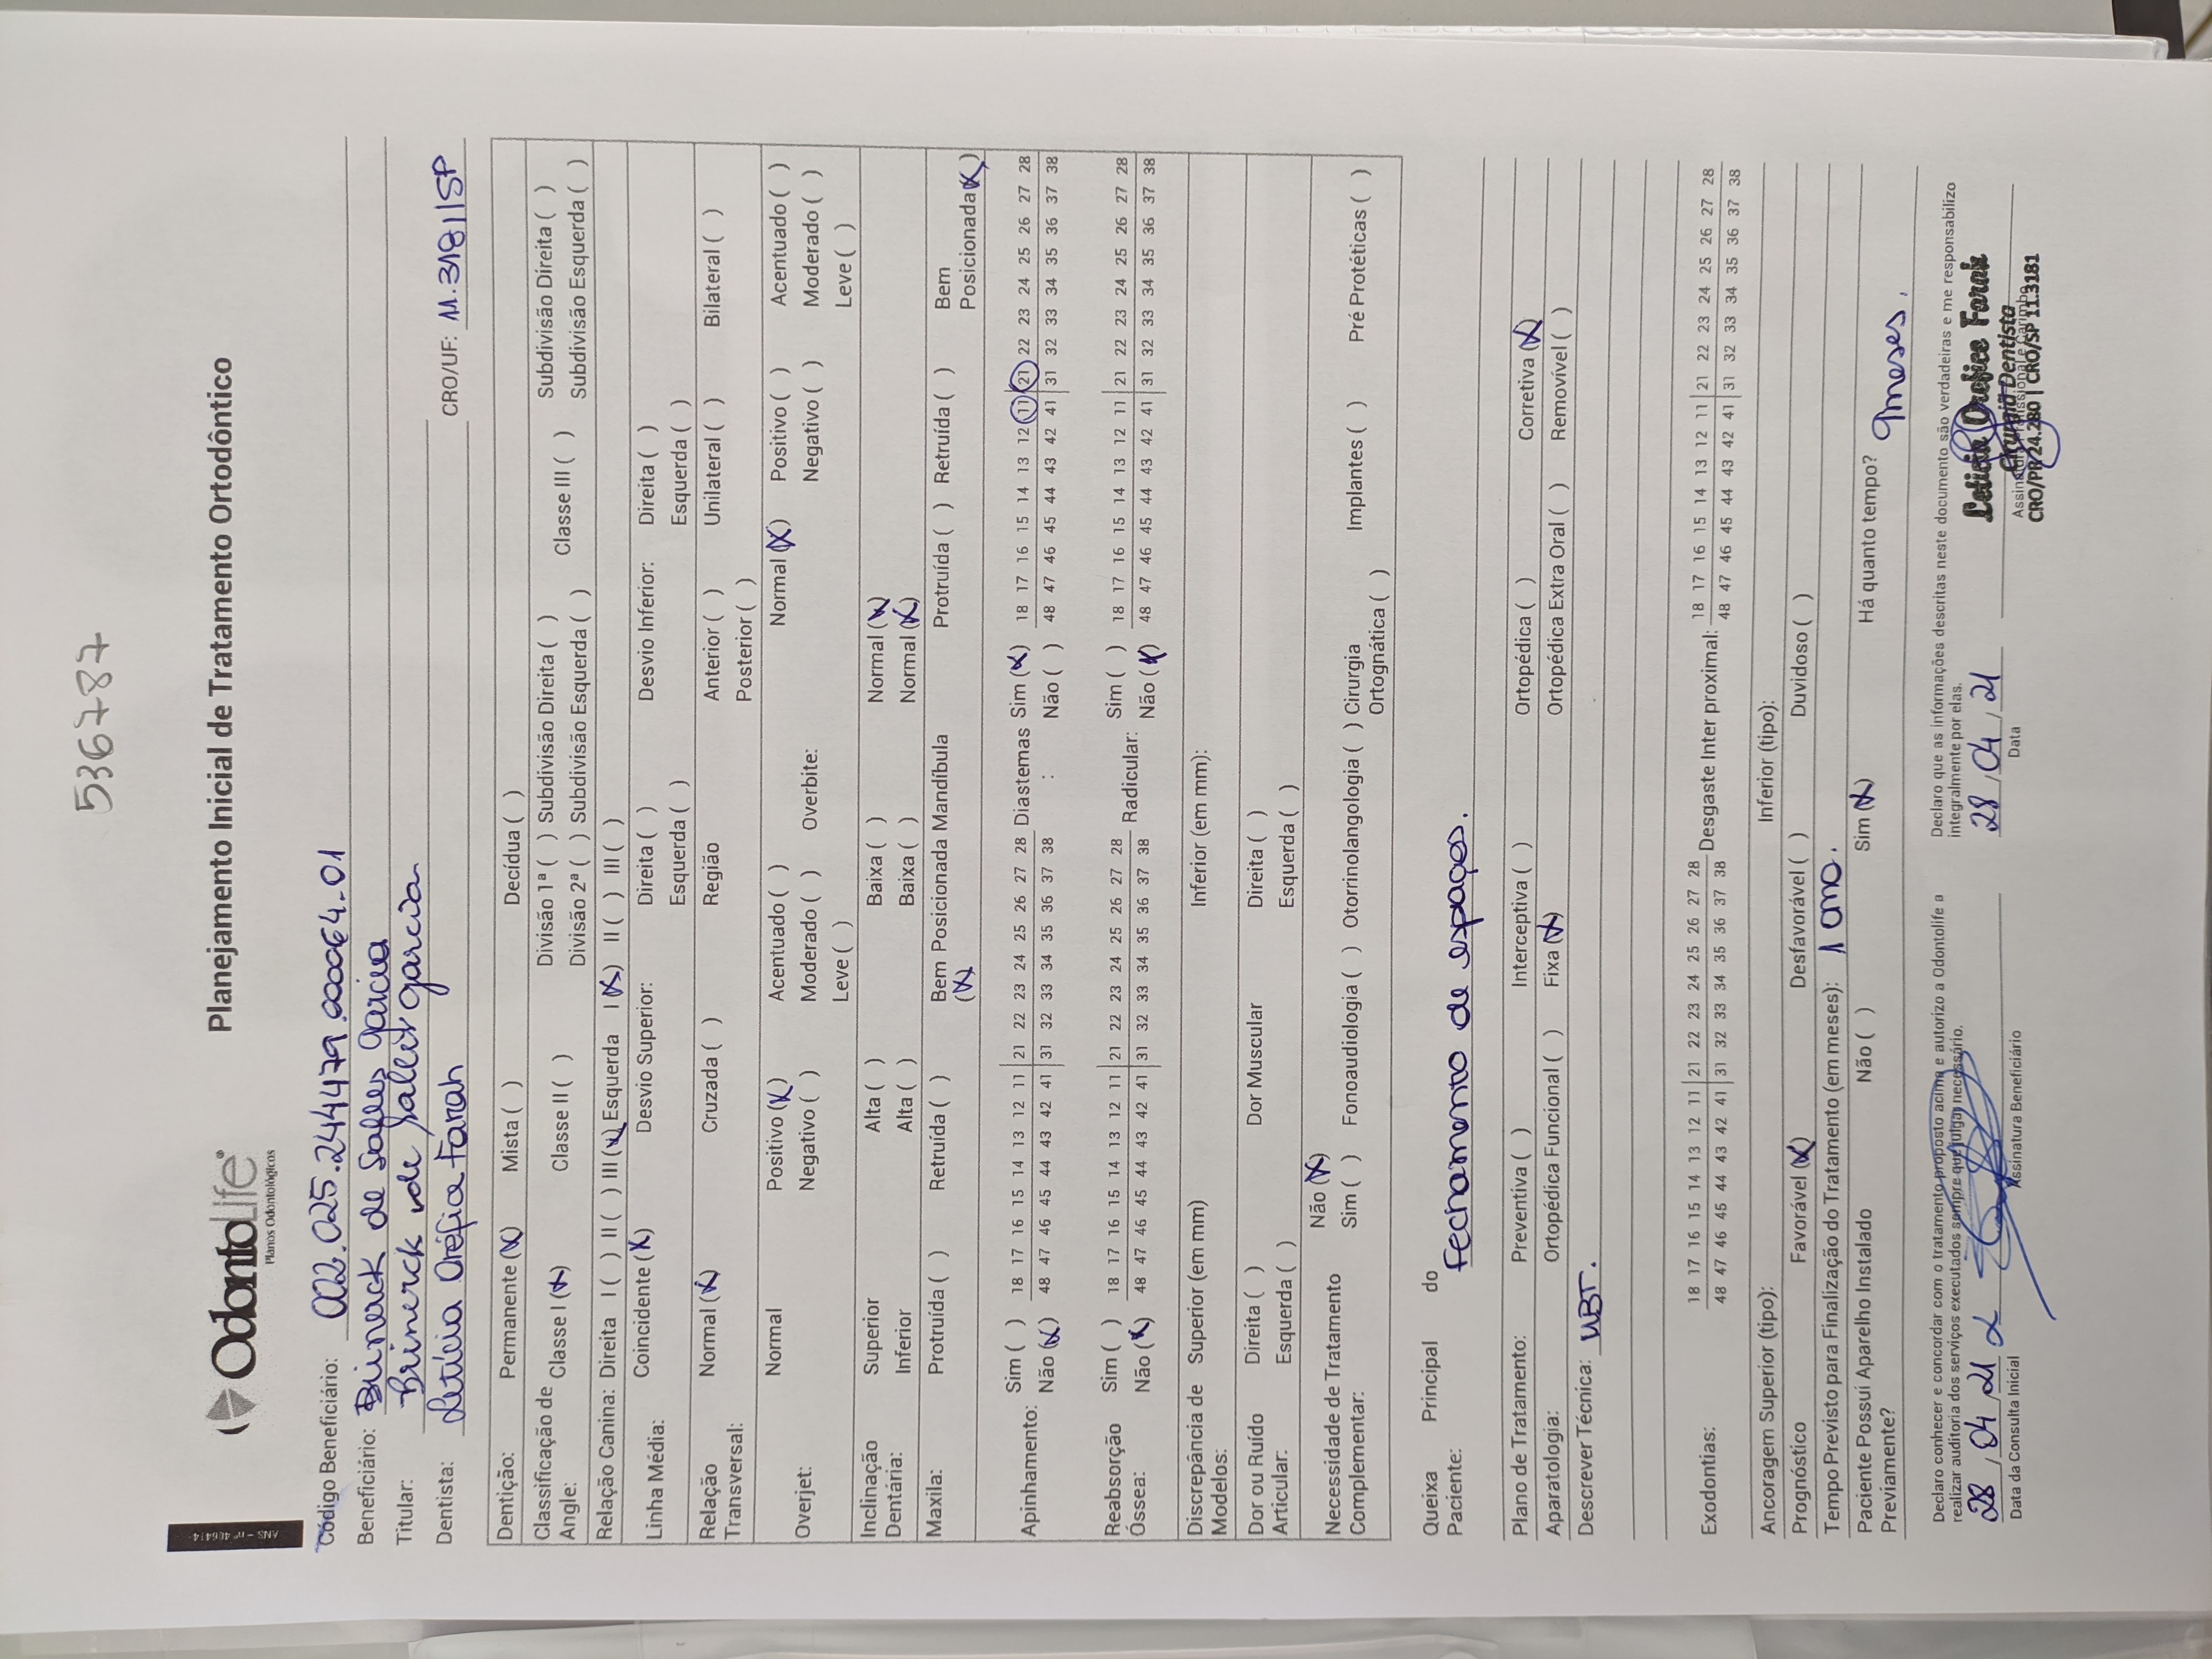 536787
ANS - nº 406414
OdontoLife®
Planos Odontológicos
Planejamento Inicial de Tratamento Ortodôntico
Código Beneficiário: 002.025.244479.00064-01
Beneficiário: Brinerck de Salles Garcia
Titular: Brinerck de Salles Garcia
Dentista: Letícia Oréfice Farah CRO/UF: 11.3181/SP
Dentição: Permanente (X) Mista ( ) Decídua ( )
Classificação de Angle: Classe I (X) Classe II ( ) Divisão 1ª ( ) Subdivisão Direita ( ) Classe III ( ) Subdivisão Direita ( )
Divisão 2ª ( ) Subdivisão Esquerda ( ) Subdivisão Esquerda ( )
Relação Canina: Direita I ( ) II ( ) III (X) Esquerda I (X) II ( ) III ( )
Linha Média: Coincidente (X) Desvio Superior: Direita ( ) Desvio Inferior: Direita ( )
Esquerda ( ) Esquerda ( )
Relação Transversal: Normal (X) Cruzada ( ) Região Anterior ( ) Unilateral ( ) Bilateral ( )
Posterior ( )
Overjet: Normal Positivo (X) Acentuado ( ) Overbite: Normal (X) Positivo ( ) Acentuado ( )
Negativo ( ) Moderado ( ) Negativo ( ) Moderado ( )
Leve ( ) Leve ( )
Inclinação Dentária: Superior Alta ( ) Baixa ( ) Normal (X)
Inferior Alta ( ) Baixa ( ) Normal (X)
Maxila: Protruída ( ) Retruída ( ) Bem Posicionada (X) Mandíbula Protruída ( ) Retruída ( ) Bem Posicionada (X)
Apinhamento: Sim ( ) 18 17 16 15 14 13 12 11 | 21 22 23 24 25 26 27 28 Diastemas: Sim (X) 18 17 16 15 14 13 12 11 | 21 22 23 24 25 26 27 28
Não (X) 48 47 46 45 44 43 42 41 | 31 32 33 34 35 36 37 38 Não ( ) 48 47 46 45 44 43 42 41 | 31 32 33 34 35 36 37 38
Reabsorção Óssea: Sim ( ) 18 17 16 15 14 13 12 11 | 21 22 23 24 25 26 27 28 Radicular: Sim ( ) 18 17 16 15 14 13 12 11 | 21 22 23 24 25 26 27 28
Não (X) 48 47 46 45 44 43 42 41 | 31 32 33 34 35 36 37 38 Não (X) 48 47 46 45 44 43 42 41 | 31 32 33 34 35 36 37 38
Discrepância de Modelos: Superior (em mm) Inferior (em mm):
Dor ou Ruído Articular: Direita ( ) Dor Muscular Direita ( )
Esquerda ( ) Esquerda ( )
Necessidade de Tratamento Complementar: Não (X)
Sim ( ) Fonoaudiologia ( ) Otorrinolangologia ( ) Cirurgia Ortognática ( ) Implantes ( ) Pré Protéticas ( )
Queixa Principal do Paciente: Fechamento de espaços.
Plano de Tratamento: Preventiva ( ) Interceptiva ( ) Ortopédica ( ) Corretiva (X)
Aparatologia: Ortopédica Funcional ( ) Fixa (X) Ortopédica Extra Oral ( ) Removível ( )
Descrever Técnica: MBT.
Exodontias: 18 17 16 15 14 13 12 11 | 21 22 23 24 25 26 27 28 Desgaste Inter proximal: 18 17 16 15 14 13 12 11 | 21 22 23 24 25 26 27 28
48 47 46 45 44 43 42 41 | 31 32 33 34 35 36 37 38 48 47 46 45 44 43 42 41 | 31 32 33 34 35 36 37 38
Ancoragem Superior (tipo): Inferior (tipo):
Prognóstico Favorável (X) Desfavorável ( ) Duvidoso ( )
Tempo Previsto para Finalização do Tratamento (em meses): 1 ano.
Paciente Possuí Aparelho Instalado Previamente? Não ( ) Sim (X) Há quanto tempo? 9 meses.
Declaro conhecer e concordar com o tratamento proposto acima e autorizo a Odontolife a
realizar auditoria dos serviços executados sempre que julgar necessário.
28/04/21
Data da Consulta Inicial Assinatura Beneficiário
Declaro que as informações descritas neste documento são verdadeiras e me responsabilizo
integralmente por elas.
28/04/21
Data Assinatura Profissional e Carimbo
Letícia Orefice Farah
Cirurgiã Dentista
CRO/PR 24.280 | CRO/SP 11.3181